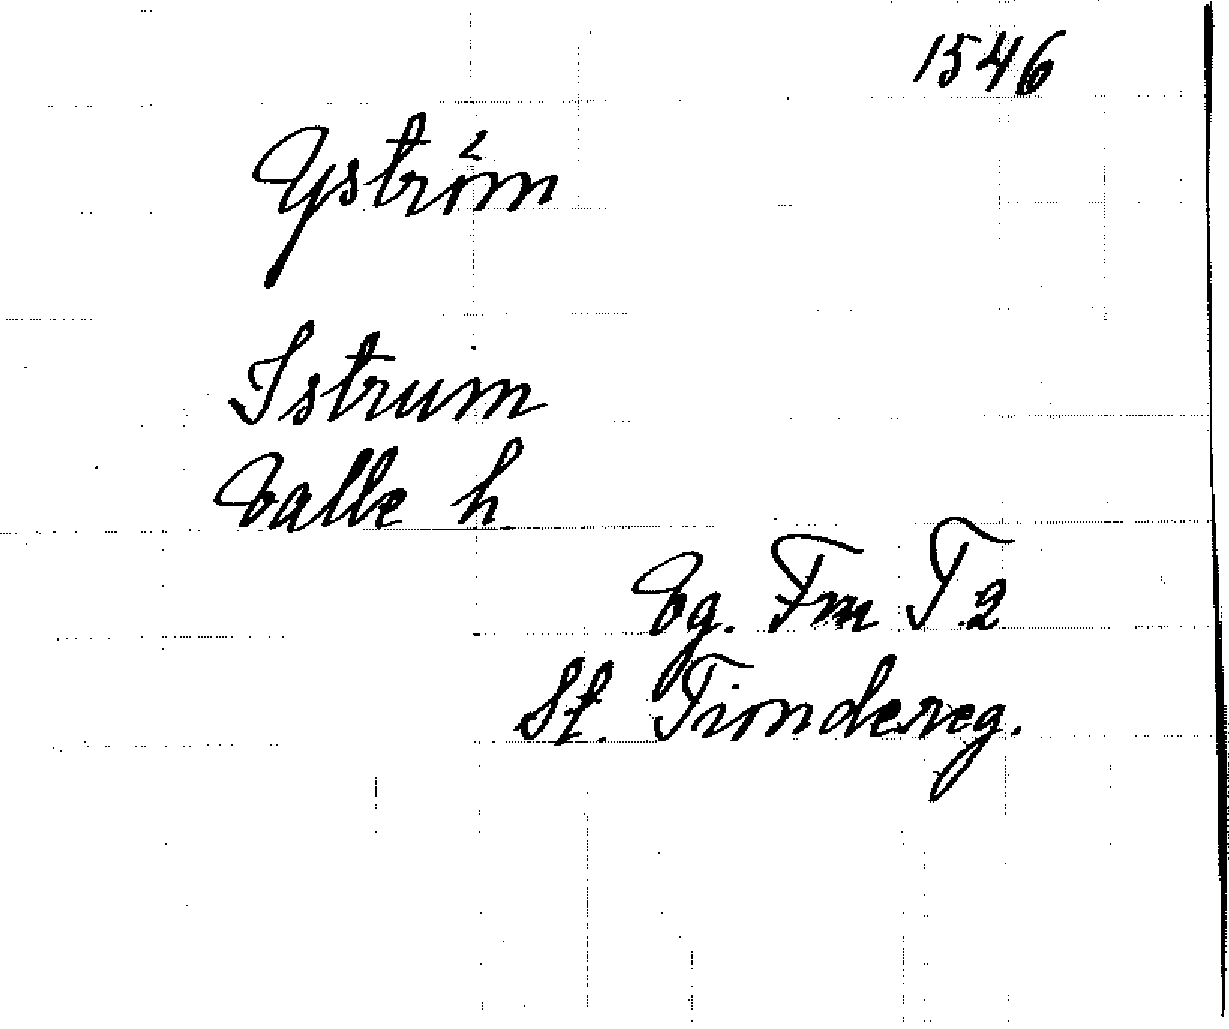 1546
Yström
Istrum
Valle h
Vg. Fm T.2
St. Tiondereg.